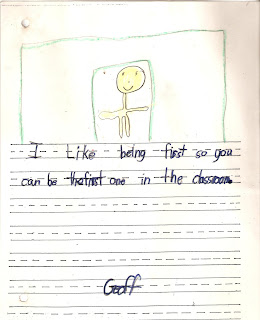 I like being first so you
can be thefirst one in the classroom.
Geoff